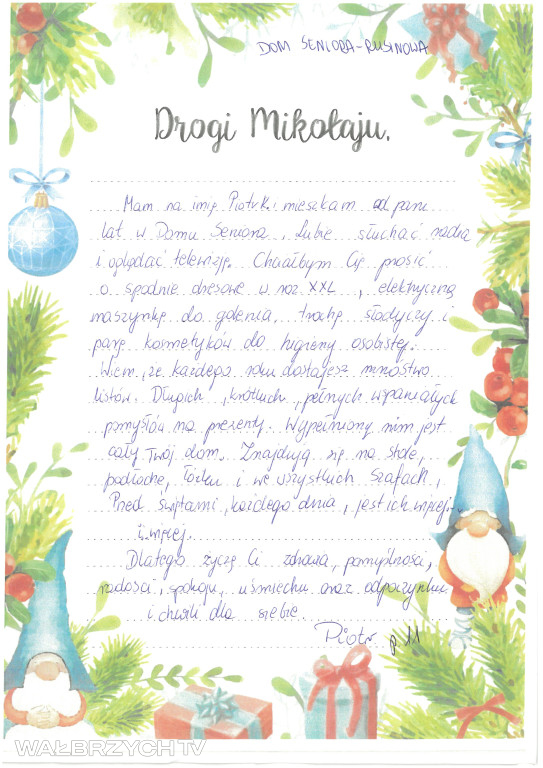 DOM SENIORA-RUSINOWA
Drogi Mikołaju,
Mam na imię Piotr i mieszkam od paru
lat w Domu Seniora, Lubię słuchać radia
i oglądać telewizję. Chciałbym Cię prosić
o spodnie dresowe w roz XXL, elektryczną
maszynkę do golenia, trochę słodyczy i
parę kosmetyków do higieny osobistej.
Wiem, że każdego roku dostajesz mnóstwo
listów. Długich, krótkich, pełnych wspaniałych
pomysłów na prezenty. Wypełniony nimi jest
cały Twój dom. Znajdują się na stole,
podłodze, łóżku i we wszystkich szafach,
Przed świętami, każdego dnia, jest ich więcej
i więcej.
Dlatego życzę Ci zdrowia, pomyślności,
radości, spokoju, uśmiechu oraz odpoczynku
i chwili dla siebie.
Piotr p 11
WAŁBRZYCH TV